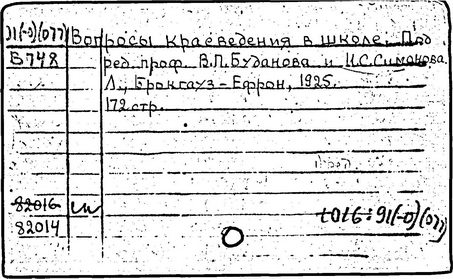 91(-0)(077) Вопросы краеведения в школе. Под
В748 ред. проф. В.П. Буданова и И.С. Симонова.
Л., Брокгауз-Ефрон, 1925.
172 стр.
82016
82014